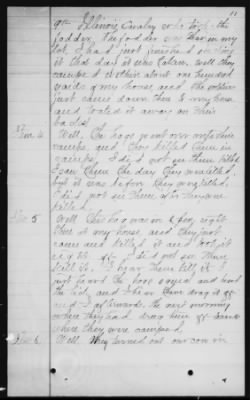 11
9th Illinois Cavalry who took the
fodder, the fodder was there in my
lot. I had just finished putting
it that day it was taken. Well they
camped within about one hundred
yards of my house, and the soldiers
just came down there to my house
and toted it away on their
backs.
Well, the hogs went over into their
camps, and they killed them in
camps, I did not see them killed
I saw them the day they were killed,
but it was before they were killed.
I did not see them after they were
killed.
5 Well this hog was in a pen, right
there at my house, and they just
came and killed it and took it
I did not see them
kill it. I hear them kill it. I
just heard the hogs squeal and heard
the lick, and I hear them drag it off
and I afterwards, the next morning
where they had drag them off
where they were camped.
6 Well. They turned out our cow in